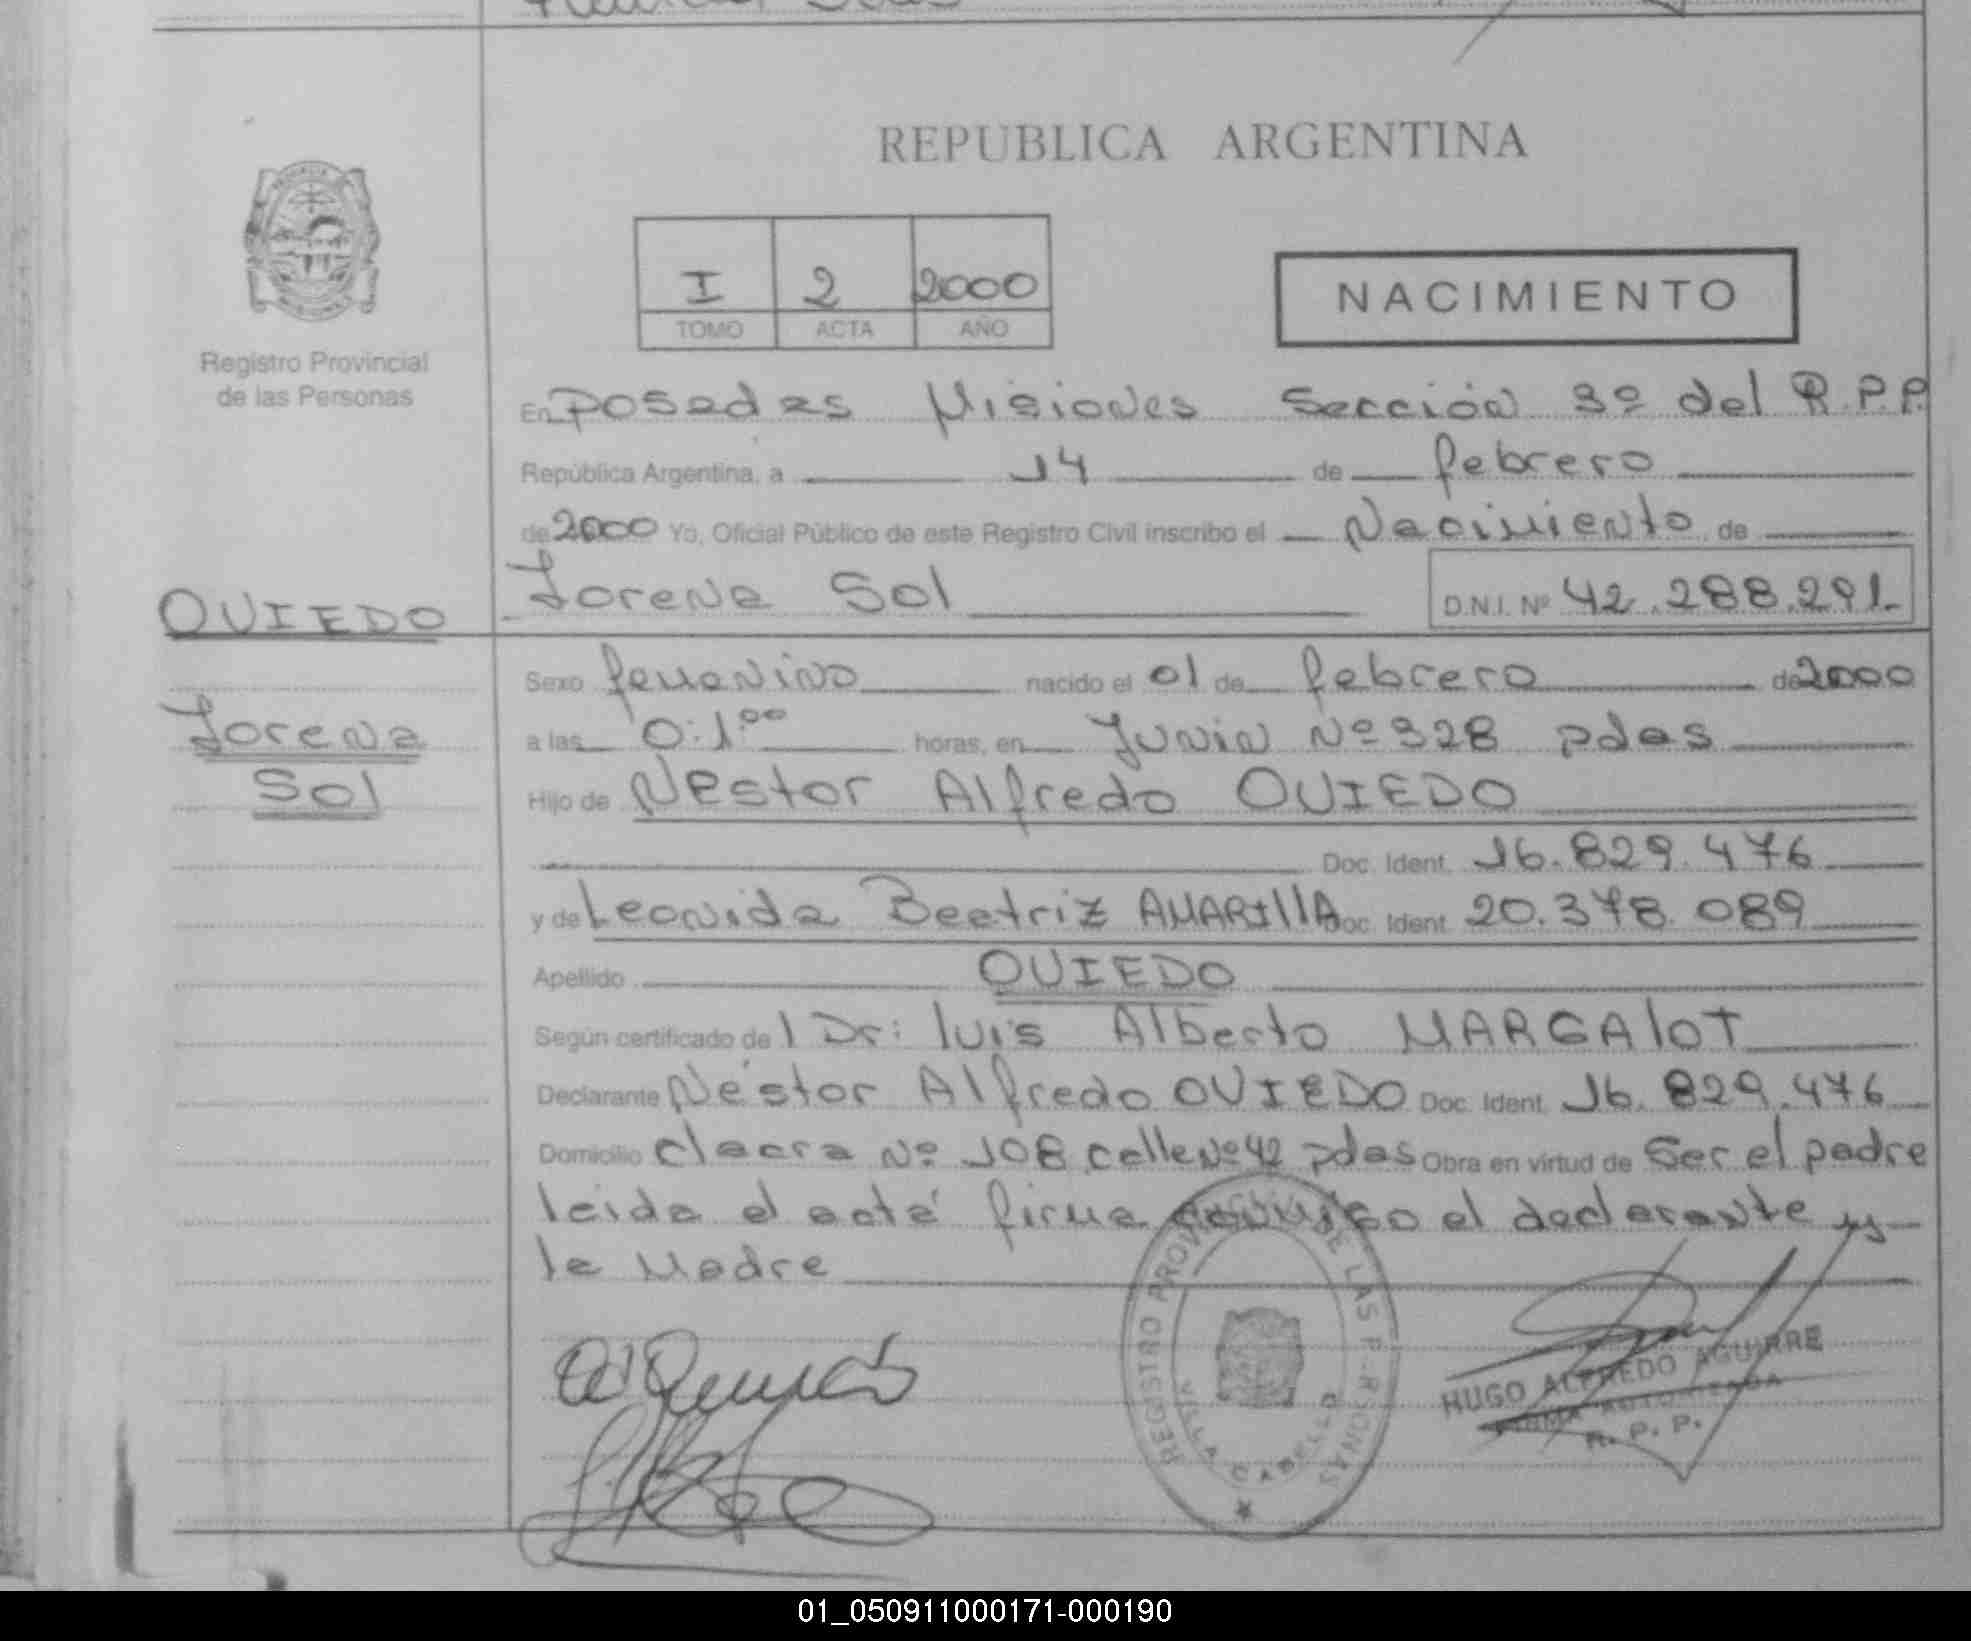 REPUBLICA ARGENTINA
I 2 2000
TOMO ACTA AÑO
NACIMIENTO
Registro Provincial
de las Personas
En Posadas Misiones Sección 3º del R.P.P.
República Argentina, a 14 de febrero
de 2000 Yo, Oficial Público de este Registro Civil inscribo el Nacimiento de
Lorena Sol D.N.I. Nº 42.288.291
OVIEDO
Lorena
Sol
Sexo femenino nacido el 01 de febrero de 2000
a las 0:1⁰⁰ horas, en Junin Nº 328 pdas
Hijo de Nestor Alfredo OVIEDO
Doc. Ident. 16.829.476
y de Leonida Beatriz AMARIllA Doc. Ident. 20.378.089
Apellido OVIEDO
Según certificado de l Dr: luis Alberto MARGAlOT
Declarante Néstor Alfredo OVIEDO Doc. Ident. 16.829.476
Domicilio chacra Nº 108 calle Nº 42 pdas Obra en virtud de Ser el padre
leida el acta firma conmigo el declarante y
la Madre
REGISTRO PROVINCIAL DE LAS PERSONAS
VILLA CABELLO
HUGO ALFREDO AGUIRRE
FIRMA AUTORIZADA
R. P. P.
01_050911000171-000190